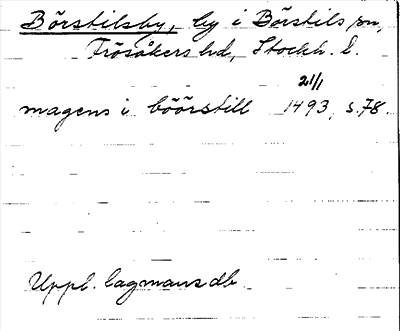 Börstilsby, by i Börstils sn,
Frösåkers hd, Stockh. l.
21/1
magens i böörstill 1493, s. 78.
Uppl. lagmansdb.